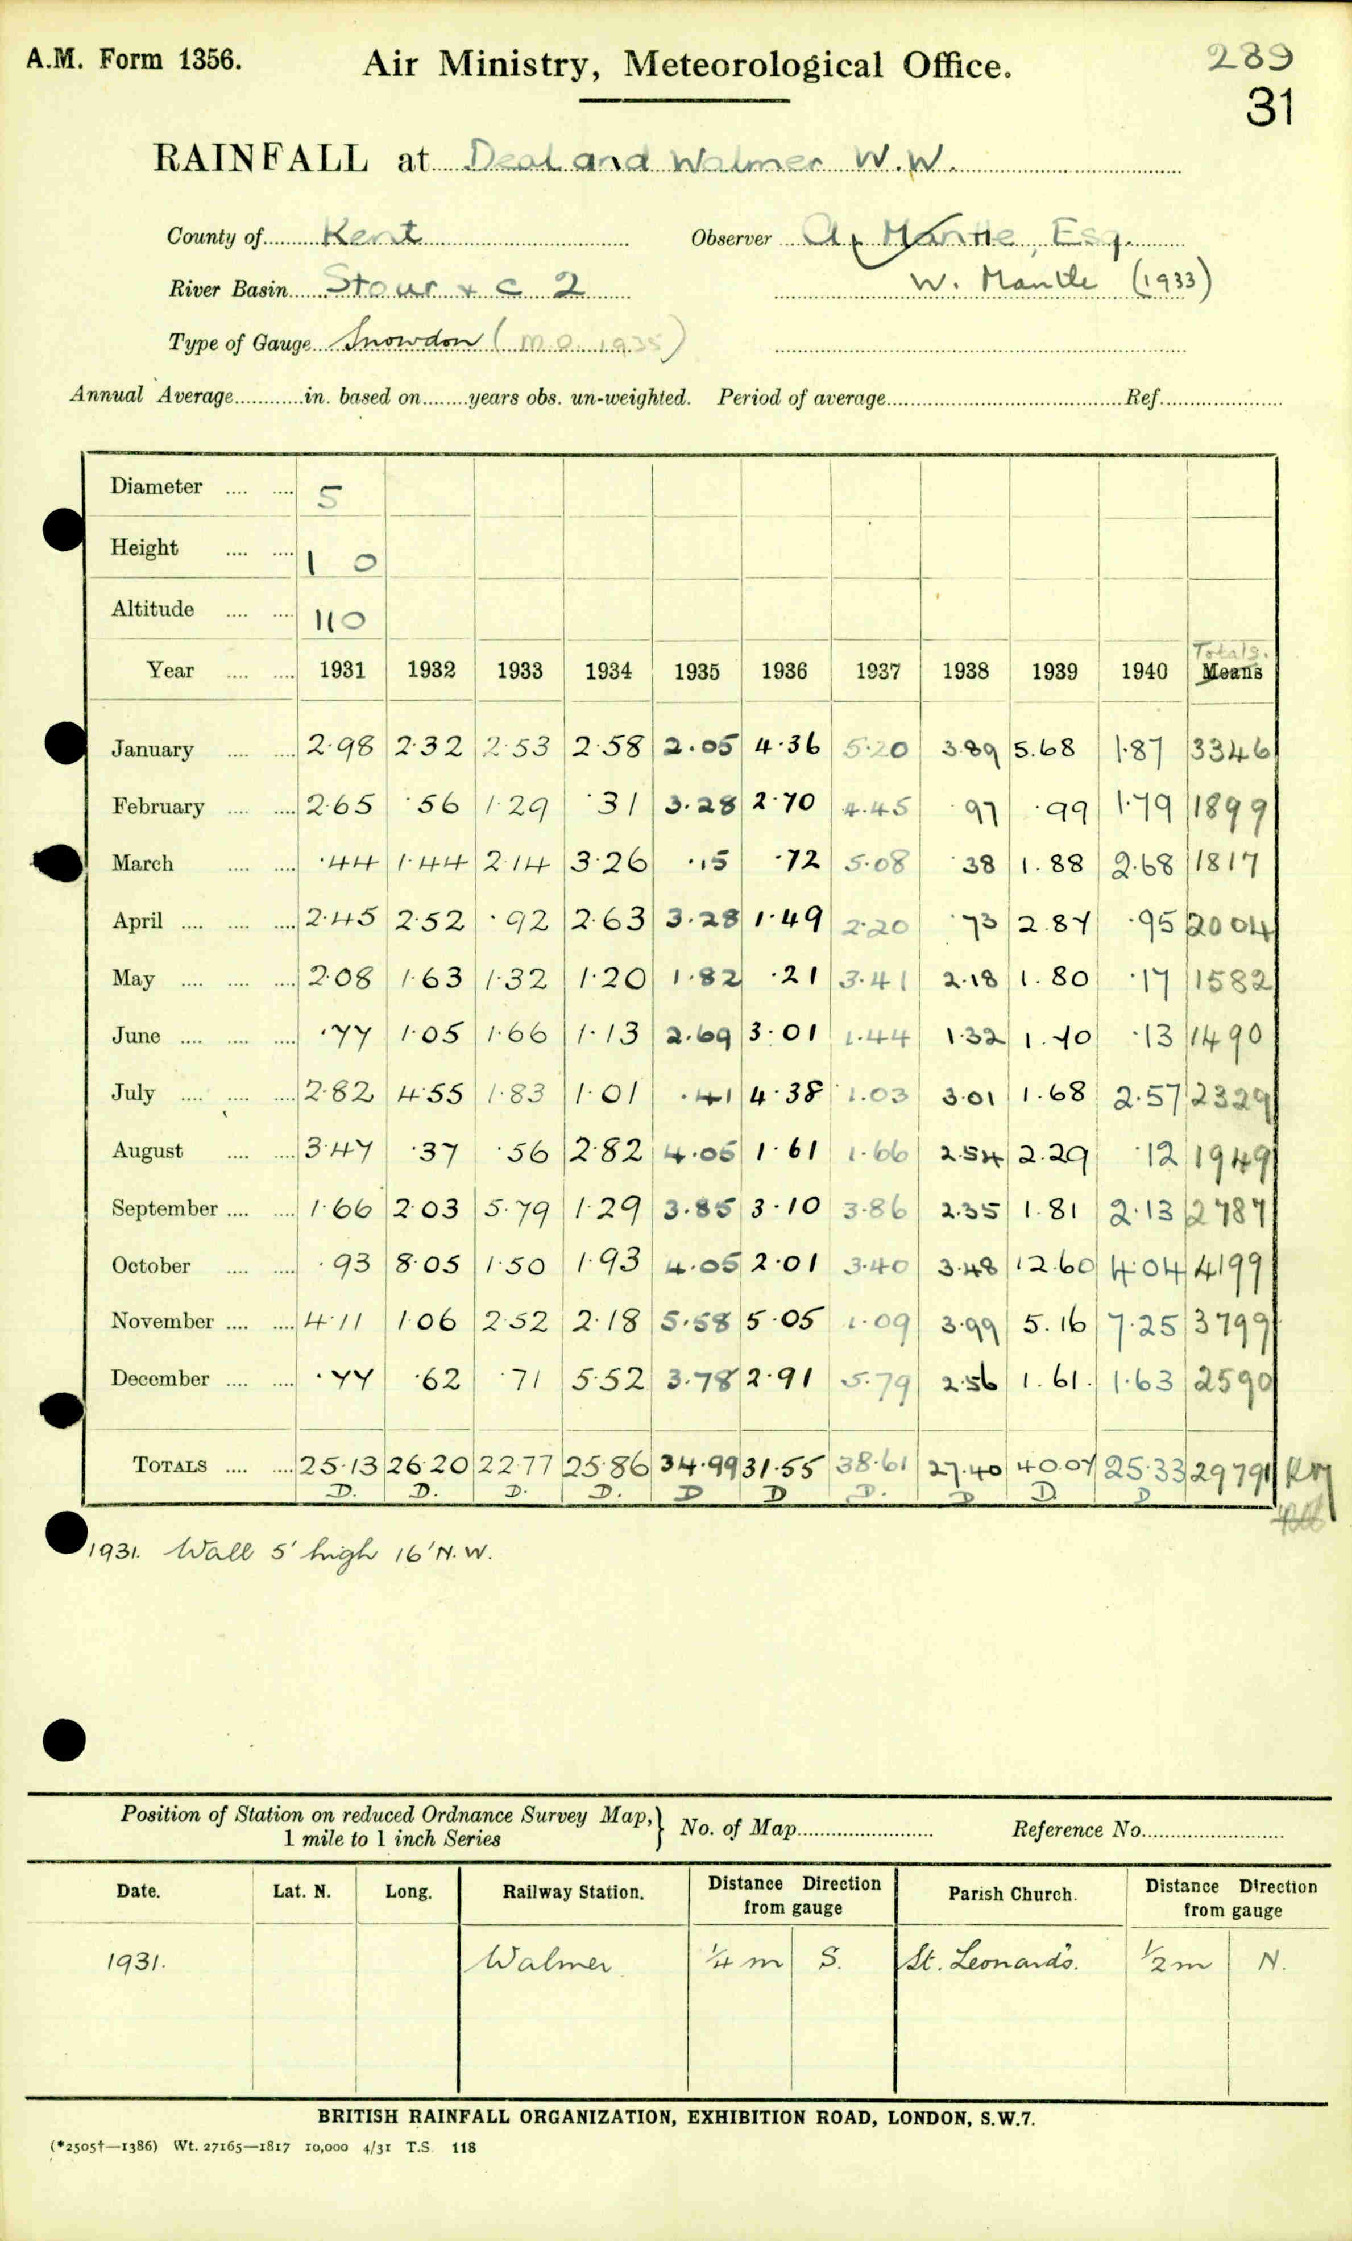 A.M. Form 1356. Air Ministry, Meteorological Office. 289
31
RAINFALL at Deal and Walmer W.W.
County of Kent Observer A. Mantle, Esq.
River Basin Stour & C 2 W. Mantle (1933)
Type of Gauge Snowdon (M.O. 1935)
Annual Average in. based on years obs. un-weighted. Period of average Ref.
Diameter 5
Height 1 0
Altitude 110
Totals.
Year 1931 1932 1933 1934 1935 1936 1937 1938 1939 1940 Means
January 2.98 2.32 2.53 2.58 2.05 4.36 5.20 3.89 5.68 1.87 3346
February 2.65 .56 1.29 .31 3.28 2.70 4.45 .97 .99 1.79 1899
March .44 1.44 2.14 3.26 .15 .72 5.08 .38 1.88 2.68 1817
April 2.45 2.52 .92 2.63 3.28 1.49 2.20 .73 2.87 .95 2004
May 2.08 1.63 1.32 1.20 1.82 .21 3.41 2.18 1.80 .17 1582
June .77 1.05 1.66 1.13 2.69 3.01 1.44 1.32 1.70 .13 1490
July 2.82 4.55 1.83 1.01 .41 4.38 1.03 3.01 1.68 2.57 2329
August 3.47 .37 .56 2.82 4.05 1.61 1.66 2.54 2.29 .12 1949
September 1.66 2.03 5.79 1.29 3.85 3.10 3.86 2.35 1.81 2.13 2787
October .93 8.05 1.50 1.93 4.05 2.01 3.40 3.48 12.60 4.04 4199
November 4.11 1.06 2.52 2.18 5.58 5.05 1.09 3.99 5.16 7.25 3799
December .77 .62 .71 5.52 3.78 2.91 5.79 2.56 1.61 1.63 2590
TOTALS 25.13 26.20 22.77 25.86 34.99 31.55 38.61 27.40 40.07 25.33 29791
D. D. D. D. D D D. D D. D
1931. Wall 5' high 16' N.W.
Position of Station on reduced Ordnance Survey Map,} No. of Map Reference No.
1 mile to 1 inch Series
Date. Lat. N. Long. Railway Station. Distance Direction from gauge Parish Church. Distance Direction from gauge
1931. Walmer ¼ m S. St. Leonard's. ½ m N.
BRITISH RAINFALL ORGANIZATION, EXHIBITION ROAD, LONDON, S.W.7.
(*2505†—1386) Wt. 27165—1817 10,000 4/31 T.S. 118